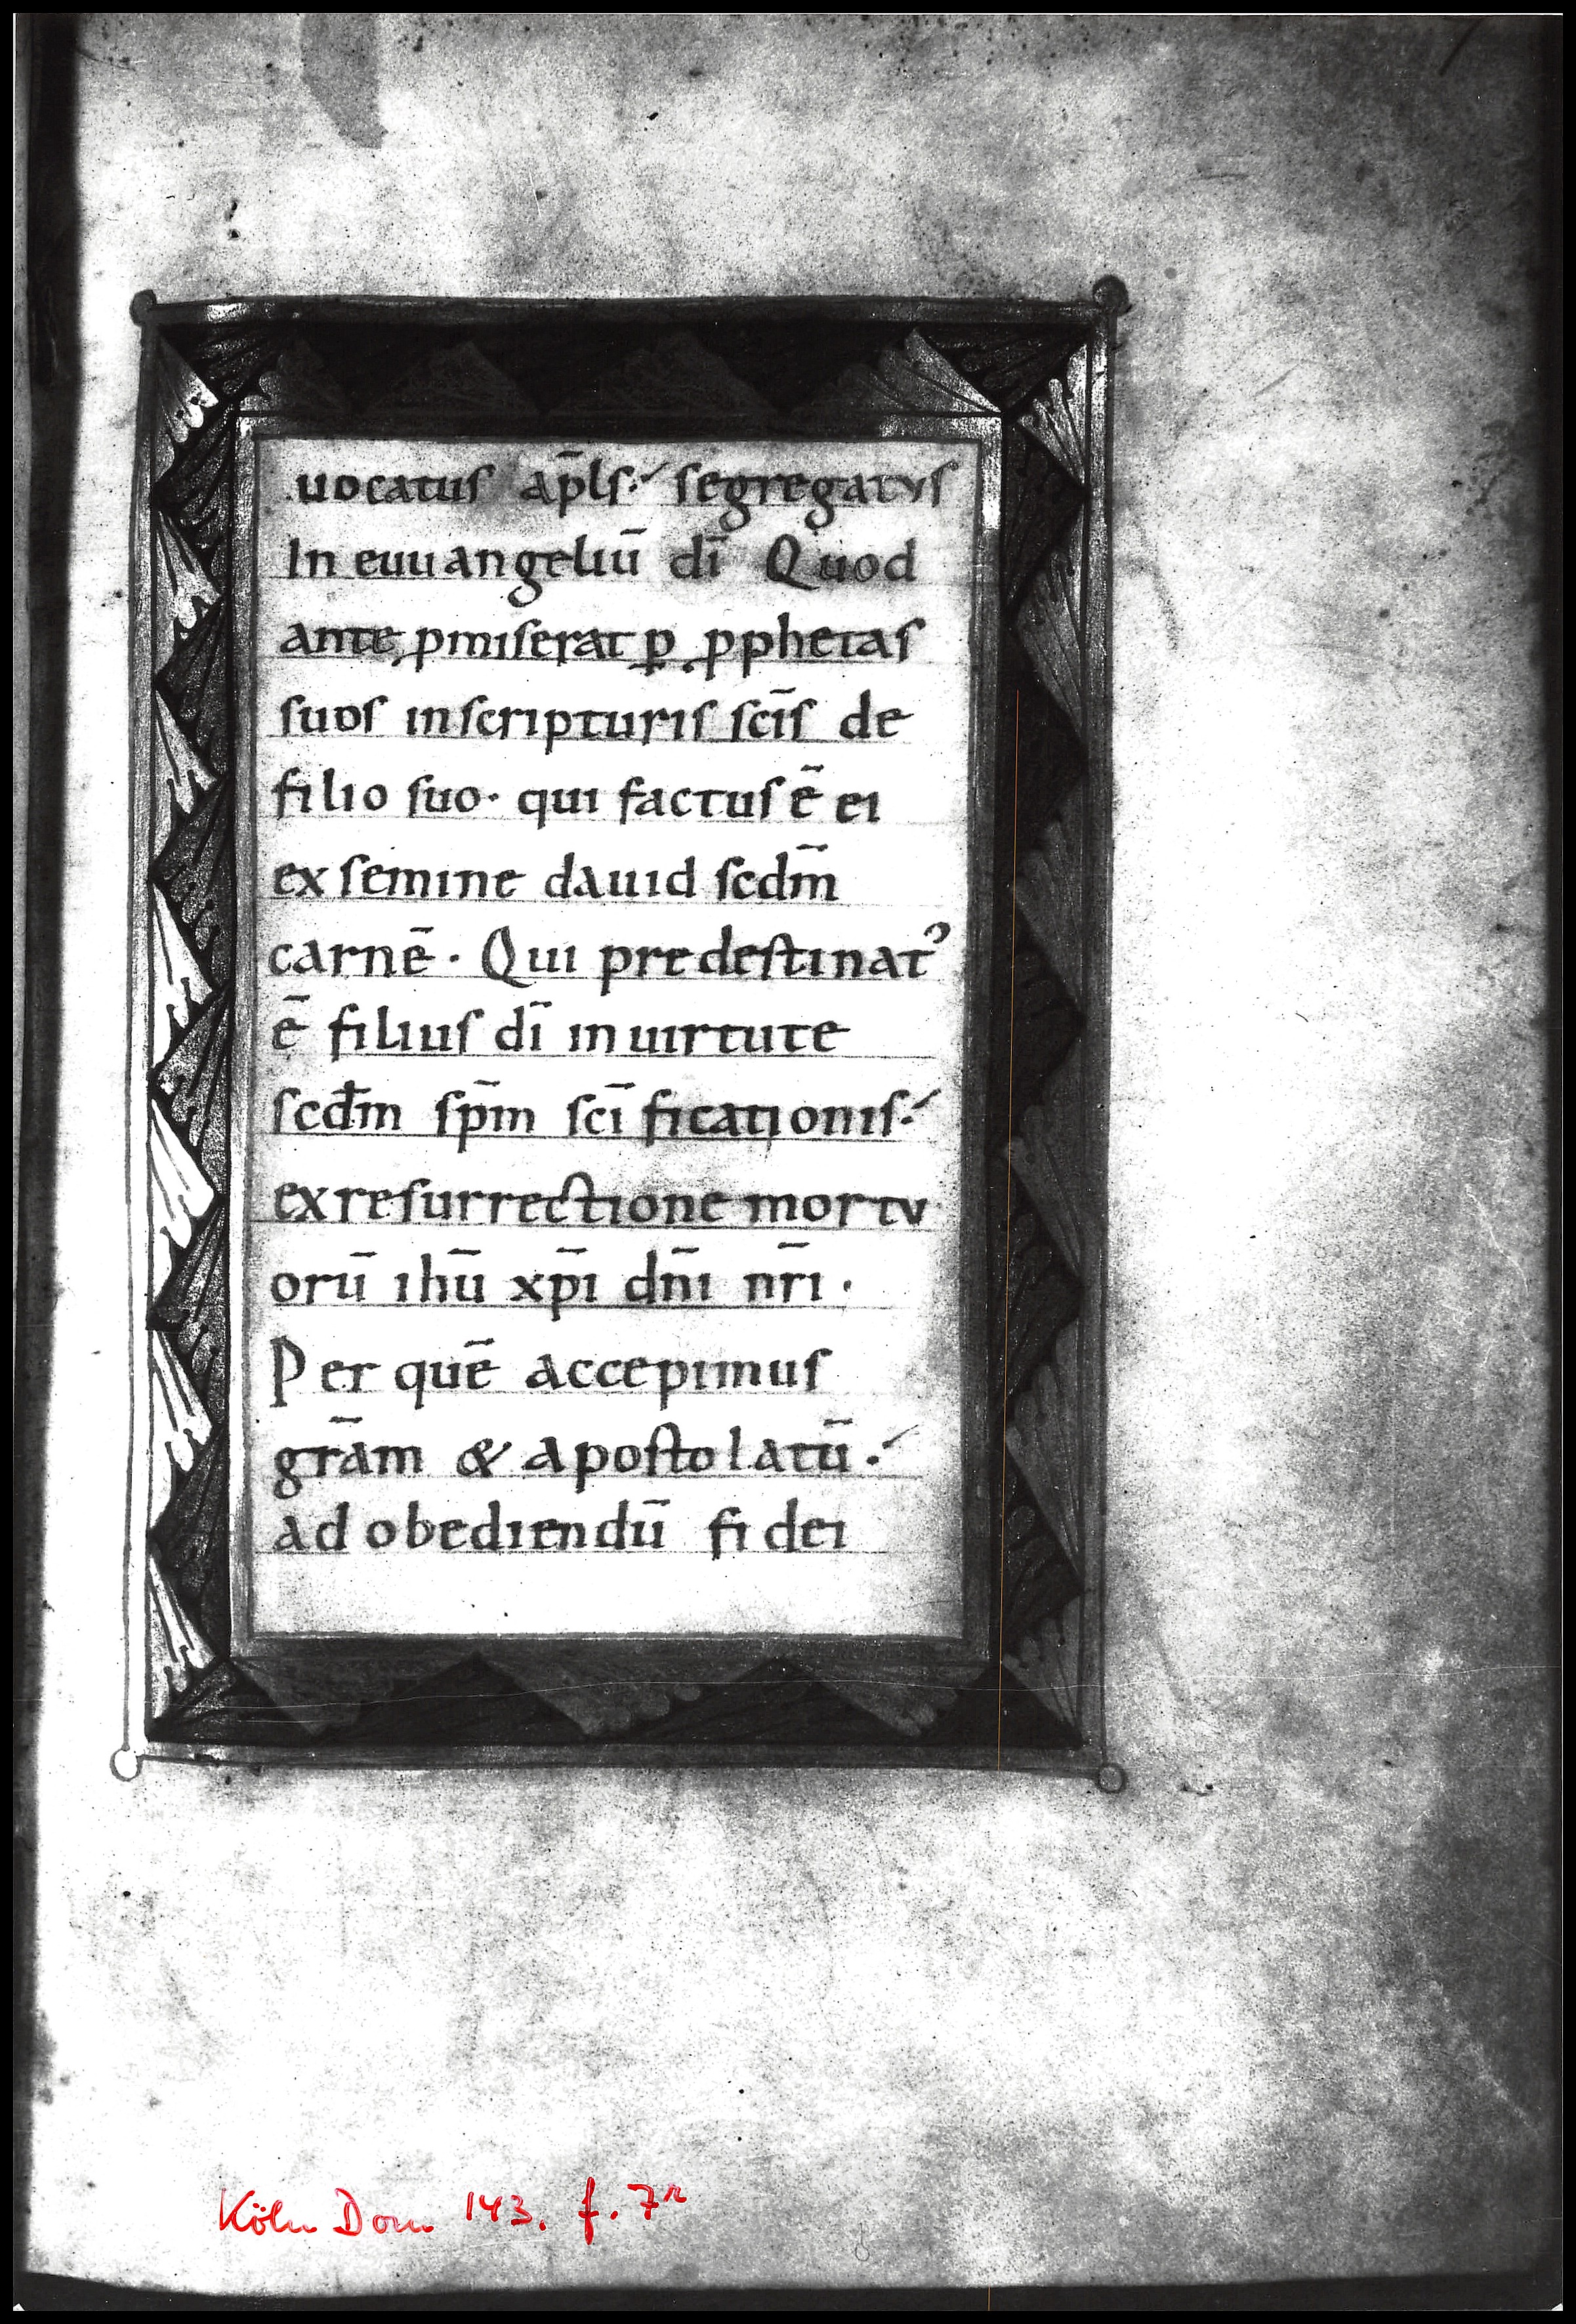 uocatus ap̄ls·́ segregatus
In euuangeliū dī Quod
ante ꝓmiserat ꝑ ꝓphetas
suos inscripturis scīs de
filio suo· qui factus ē ei
ex semine dauid scdm̄
carnē· Qui predestinatꝰ
ē filius dī in uirtute
scdm̄ sp̄m scī ficationis·́
ex resurrectione mortu
orū ihū xp̄i dn̄i nr̄i·
Per quē accepimus
gr̄am & apostolatū·́
ad obediendū fidei
Köln Dom 143. f. 7r